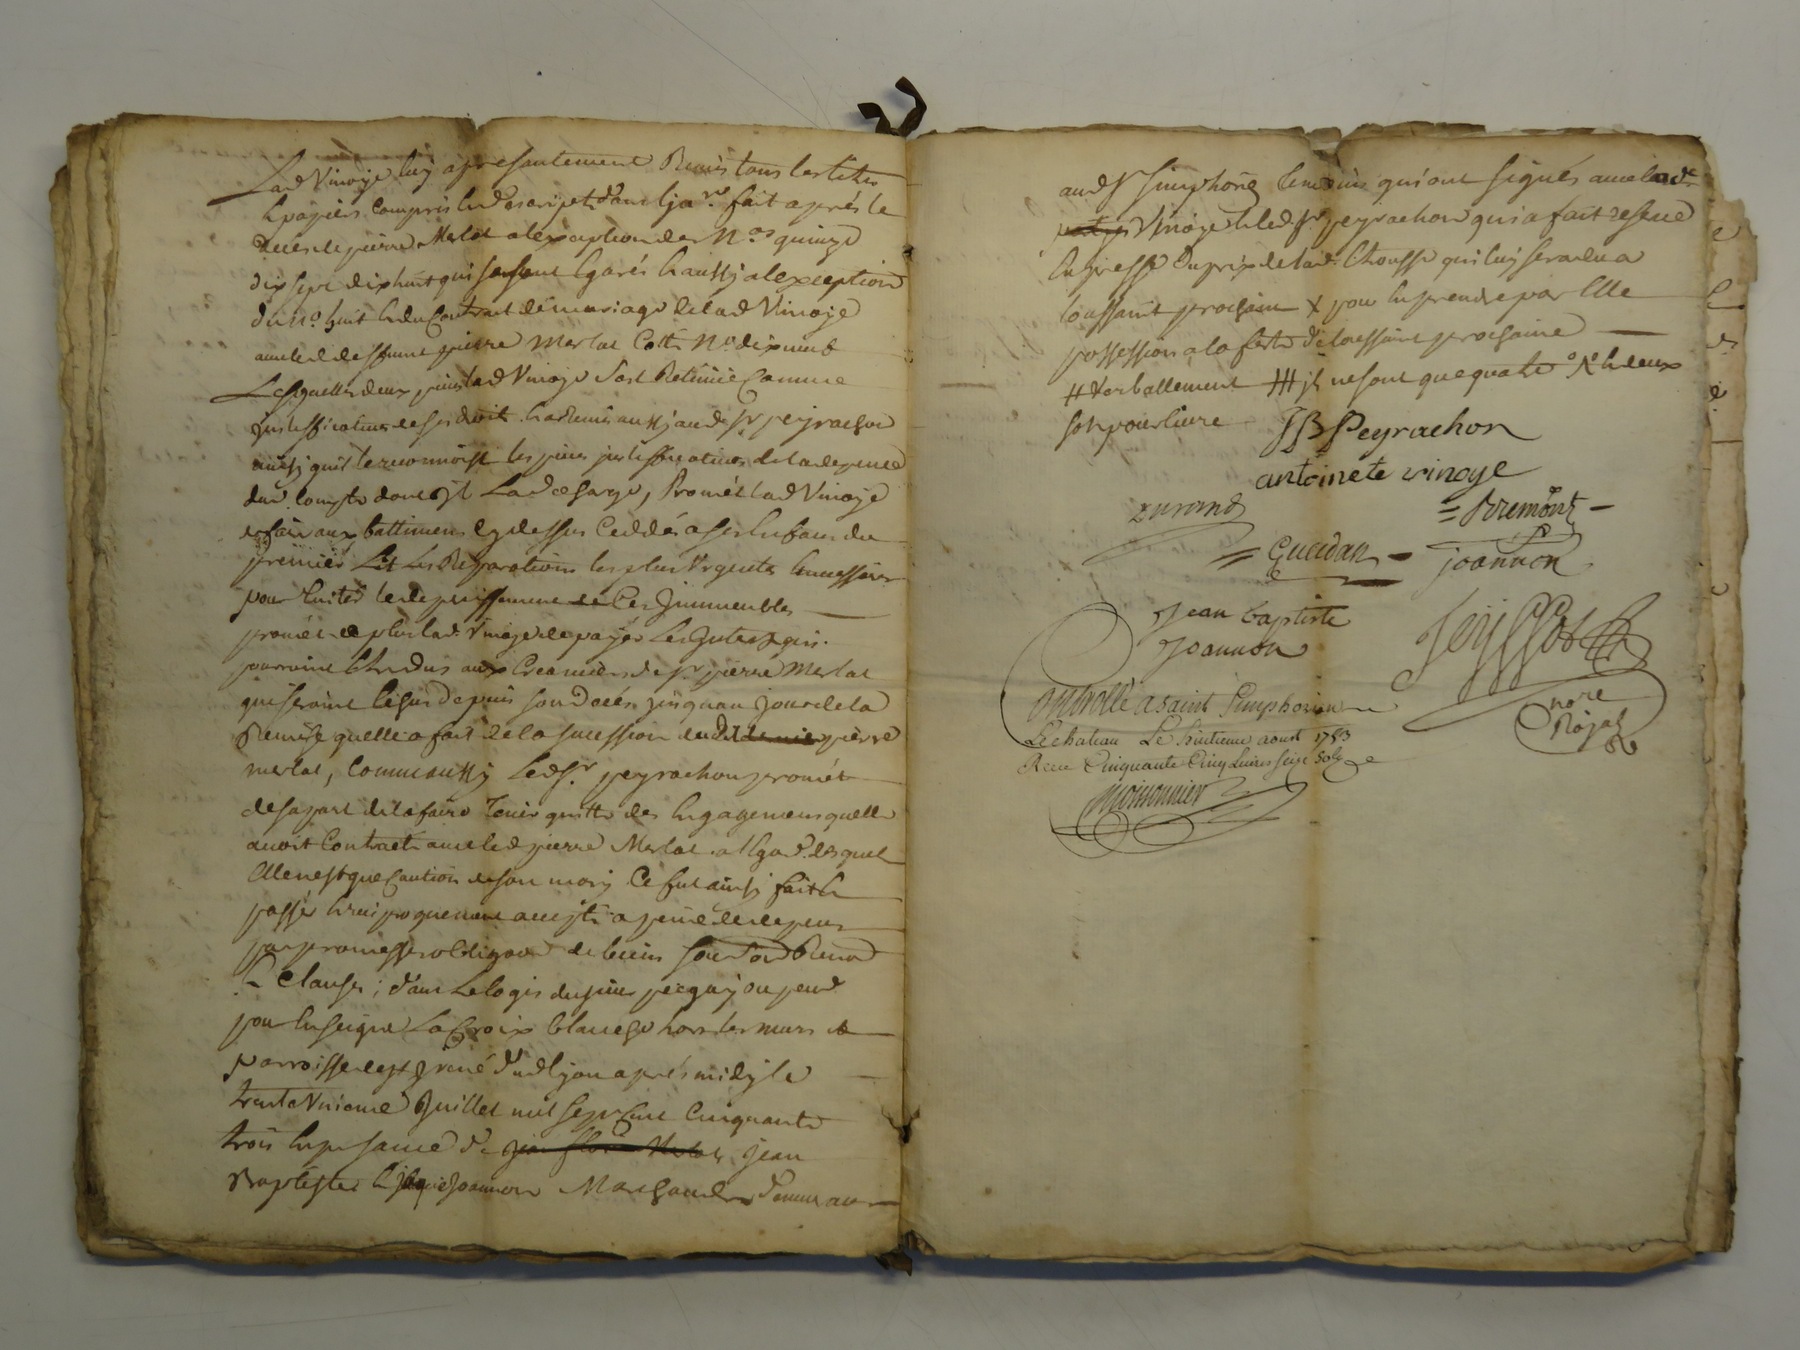 Lad Vinoye luy a presentement Remis tous les titres
& papiers compris & descripts dans l'ja.re fait après le
deces de pierre Merlat a lexception des N.os quinze
dix sept dix huit qui se sont Egarés & aussy a lexception
du N.o huit & du Contract de mariage de lad Vinoye
avec led deffunt pierre Merlat Cotté N.o dix neuf
Lesquelles deux pieces lad Vinoye s'est Retenüe Comme
justifficatives de ses droits & a Remis aussy aud sr peyrachon
ainsy quil le reconnoist les pieces justifficatives de la depence
dud. compte dont il Lad decharge, Promet lad Vinoye
de faire aux battimens cy dessus Ceddés a ses Enfans du
premier Lit Les Reparations les plus Urgentes & necessaires
pour Eviter le deperissement de Ces Immeubles
promet de plus lad. Vinoye de payer Les Interests qui
pourroint Etre dus aux Creanciers de sr pierre Merlat
qui seroint Echus depuis son decés jusquau jour de la
Remise quelle a fait de la sucession dud pierre
merlat, Comme aussy Led sr. peyrachon promet
de sa part de la faire tenir quitte des Engagemens quelle
avoit Contracté avec led pierre Merlat a l'Egard desquels
Elle nest que Caution de son mary Ce fut ainsy fait &
passé & reciproquement accepté a peine de depens
par promesse obligaon de biens soumon Renon
& Clauses ; dans Le logis du sieur peeguy ou pend
pour Enseigne La Croix blanche hors les murs &
parroisse de st Irené dud lyon aprés midy le
trente Unieme Juillet mil sept Cent Cinquante
trois En presance de Jean
Baptiste & jaque Joannon Marchands demeurant
aud st Simphorie temoins qui ont signés avec lad
Vinoye & led sr. peyrachon qui a fait reserve
Expresse du prix de lad. Chousse qui luy sera du a
toussaint prochain X pour En prendre par Elle
possession a la feste de toussaint prochaine
# verballement ## jl ne sont que quatre N.o & deux
sols pour livre
JB Peyrachon
antoinete vinoye
Durand
= Bremont -
= Gueidan -
Joannon
Jean baptiste
Joannon
Teyssot
no re
Royal
Controllé a saint Simphorien
Lechateau Le huitieme aoust 1753
Receu Cinquante Cinq Livres seize Sols
moissonnier